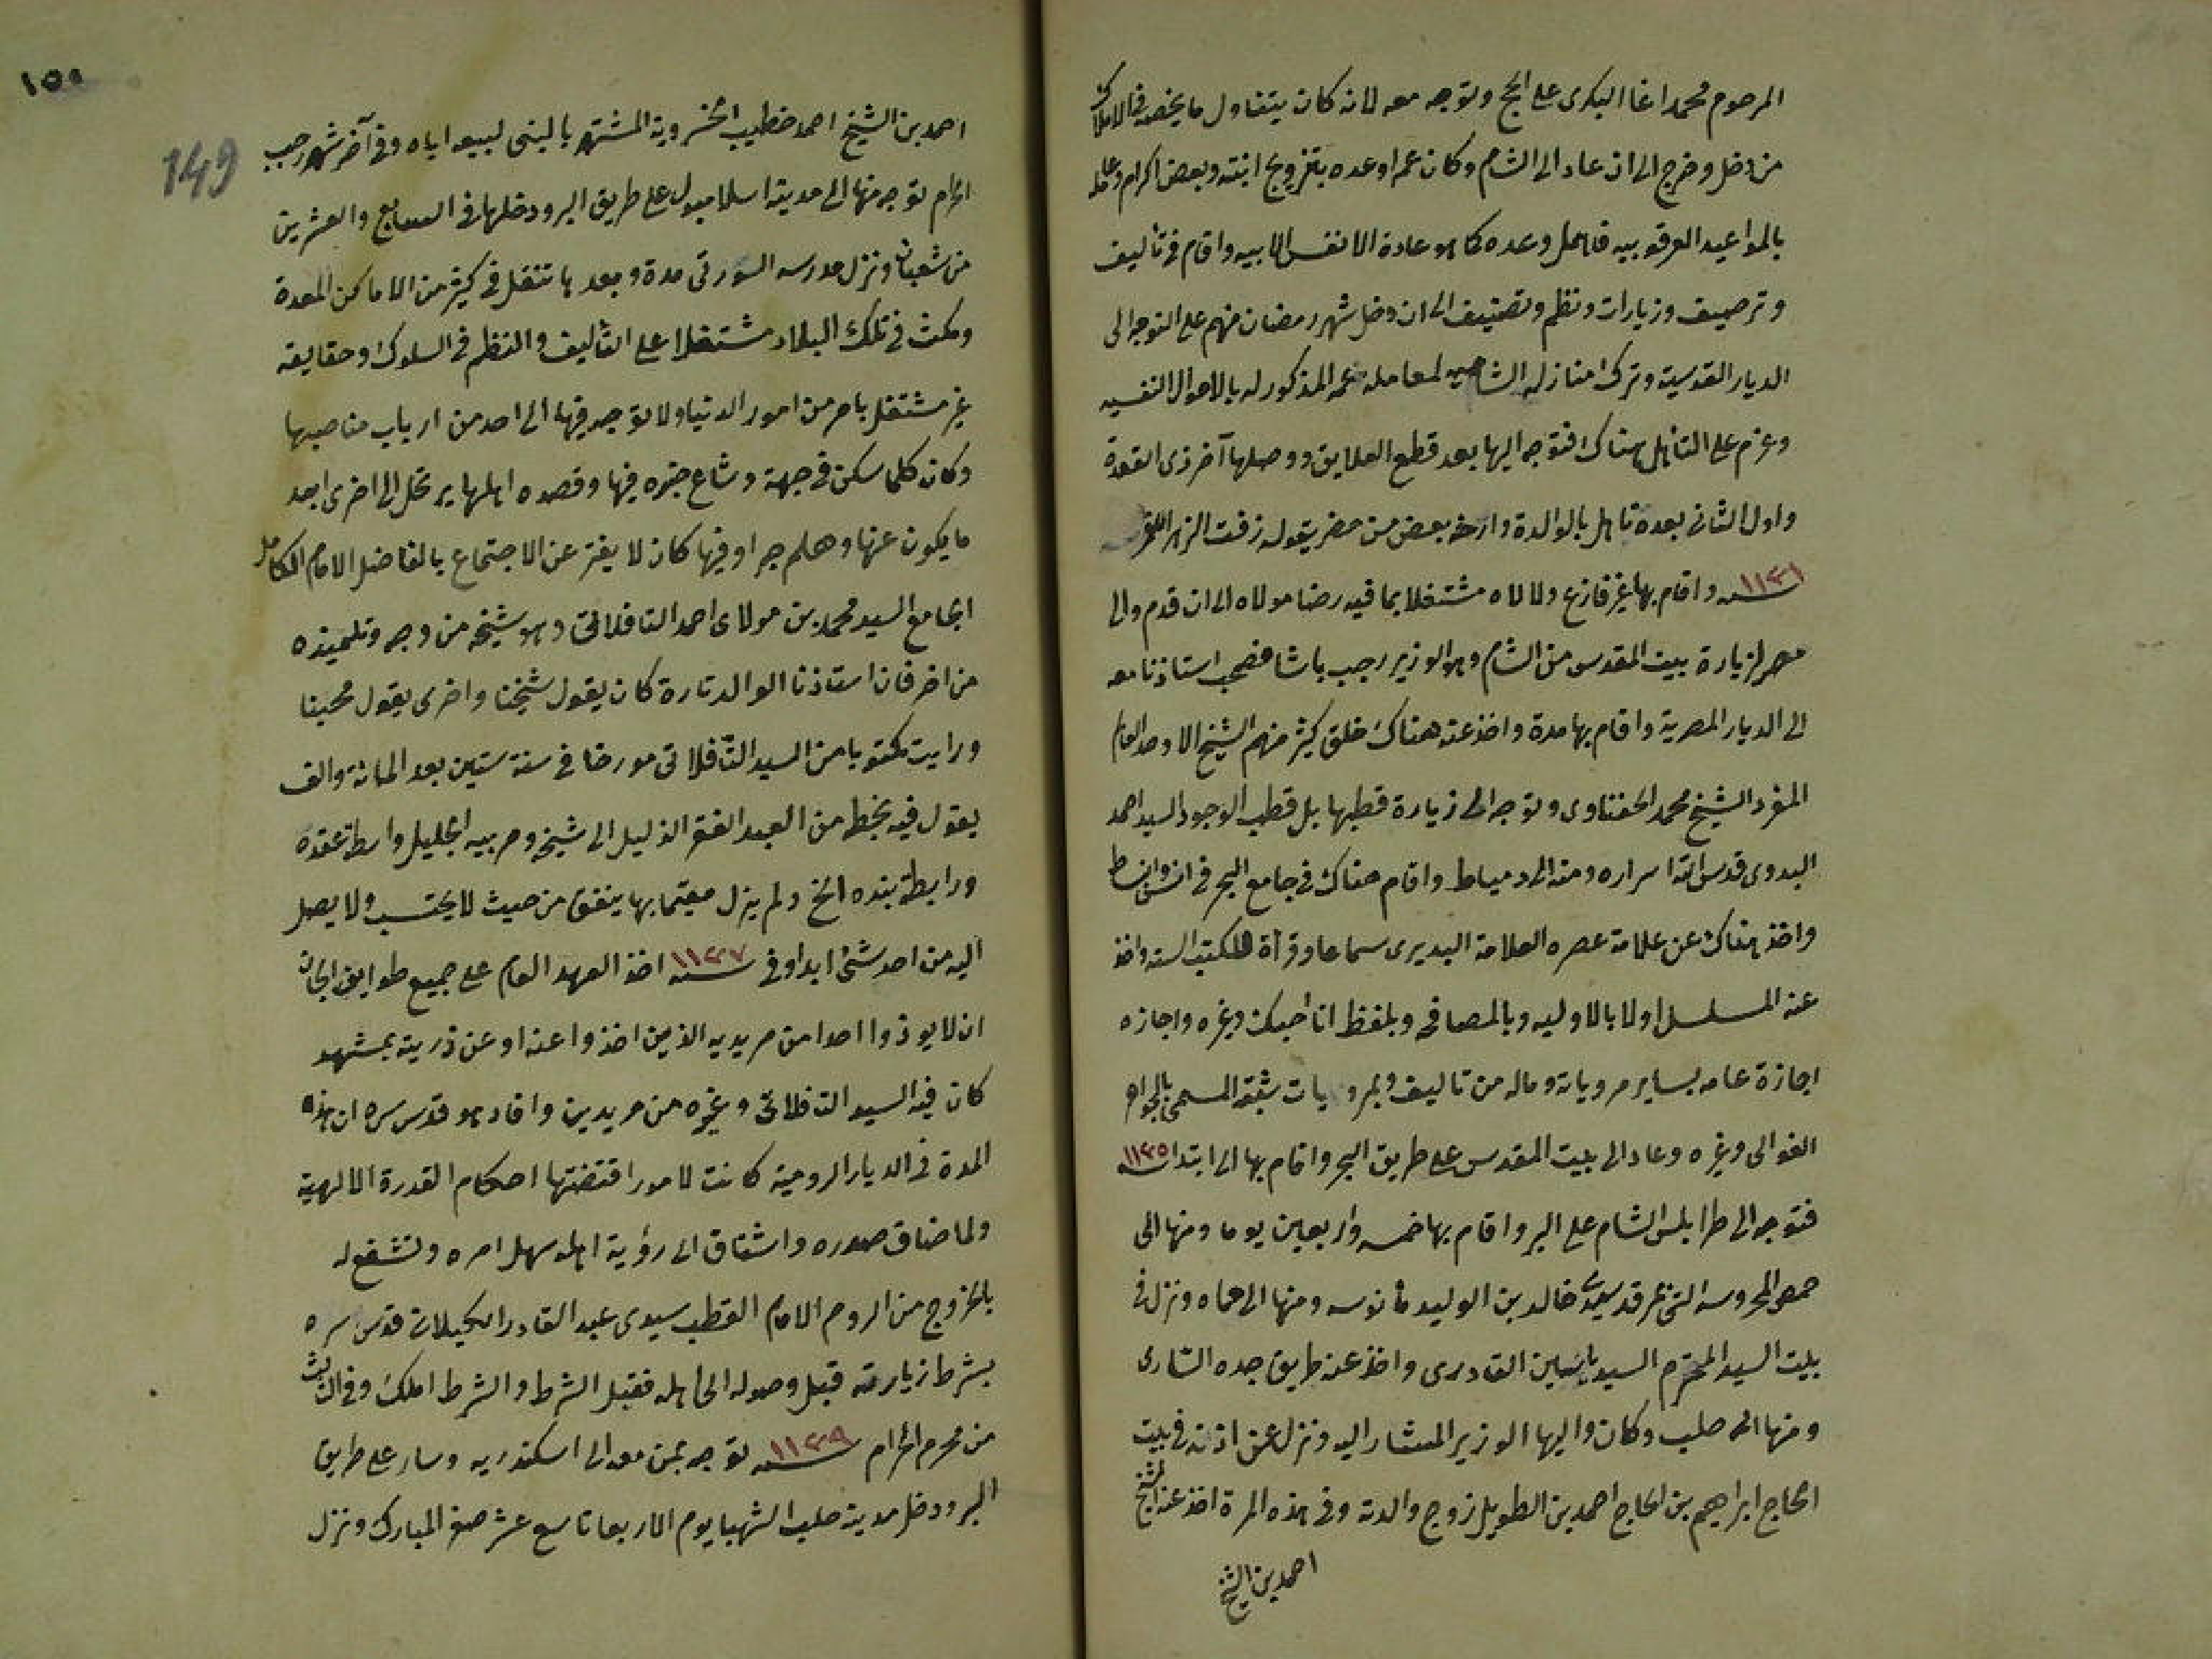 المرحوم محمد اغا البكرى على الحج وتوجه معه لانه كان يتناول ما يخصه فى الاملاك
من دخل وخرج الى ان عاد الى الشام وكان عمه اوعده بتزويج ابنته وبعض اكرام وعامله
بالمواعيد العرقوبيه فاهمل وعده كما هو عادة الانفس الابيه واقام فى تاليف
وترصيف وزيارات ونظم وتصنيف الى ان دخل شهر رمضان فهم على التوجه الى
الديار القدسية وترك منازله الشاميه لمعامله عمه المذكور له بالاحوال النفسيه
وعزم على التاهل هناك فتوجه اليها بعد قطع العلايق ووصلها آخر ذى القعدة
واول الثانى بعده تاهل بالوالدة وارخه بعض من حضر بقوله زفت الزهرا للقمر
سنه ١١٣١ واقام بها غير فازع ولا لاه مشتغلا بما فيه رضا مولاه الى ان قدم والى
مصر لزيارة بيت المقدس من الشام وهو الوزير رجب باشا فصحب استاذنا معه
الى الديار المصرية واقام بها مدة واخذ عنه هناك خلق كثير منهم الشيخ الاوحد العام
المفرد الشيخ محمد الحفناوى وتوجه الى زيارة قطبها بل قطب الوجود السيد احمد
البدوى قدس الله اسراره ومنه الى دمياط واقام هناك فى جامع البحر فى انس وانبساط
واخذ هناك عن علامة عصره العلامة البديرى سماعا وقرأة للكتب السته واخذ
عنه المسلسل اولا بالاوليه وبالمصافحه وبلفظ انا احبك وغيره واجازه
اجازة عامه بساير مروياته وماله من تاليف وبمرويات ثبته المسمى بالجواهر
الغوالى وغيره وعاد الى بيت المقدس على طريق البحر واقام بها الى ابتدا سنه ١١٣٥
فتوجه الى طرابلس الشام على البر واقام بها خمسه واربعين يوما ومنها الى
حمص المحروسه التى بمرقد سيدى خالد بن الوليد مأنوسه ومنها الى حماه ونزل فى
بيت السيد المحترم السيد ياسين القادرى واخذ عنه طريق جده السارى
ومنها الى حلب وكان واليها الوزير المشار اليه ونزل عن اذنه فى بيت
الحاج ابراهيم بن الحاج احمد بن الطويل زوج والدته وفى هذه المرة اخذ عنه الشيخ
احمد بن الشيخ
١٥٠
149
احمد بن الشيخ احمد خطيب الخسرويه المشتهر بالبنى لبيعه اياه وفى آخر شهر رجب
الحرام توجه منها الى مدينة اسلامبول على طريق البر ودخلها فى السابع والعشرين
من شعبان ونزل مدرسه السورتى مدة وبعدها تنقل فى كثير من الاماكن المعدة
ومكث فى تلك البلاد مشتغلا على التأليف والنظم فى السلوك وحقايقه
غير مشتغل بامر من امور الدنيا ولا توجه فيها الى احد من ارباب مناصبها
وكان كلما سكن فى جهة وشاع خبره فيها وقصده اهلها يرتحل الى اخرى ابعد
ما يكون عنها وهلم جرا وفيها كان لا يفتر عن الاجتماع بالفاضل الامام الكامل
الجامع السيد محمد بن مولاى احمد التافلاتى وهو شيخه من وجه وتلميذه
من اخر فان استاذنا الوالد تارة كان يقول شيخنا واخرى يقول محبنا
ورايت مكتوبا من السيد التافلاتى مورخا فى سنة ستين بعد المائة والف
يقول فيه بخطه من العبد الفقير الذليل الى شيخه ومربيه الجليل واسطة عقده
ورابطة بنده الخ ولم يزل مقيما بها ينفق من حيث لا يحتسب ولا يصل
اليه من احد شئ ابدا وفى سنه ١١٣٧ اخذ العهد العام على جميع طوايف الجان
ان لا يوذوا احدا من مريديه الذين اخذوا عنه او عن ذريته بمشهد
كان فيه السيد التافلاتى وغيره من مريدين وافاد هو قدس سره ان هذه
المدة فى الديار الرومية كانت لامور اقتضتها احكام القدرة الالهية
ولما ضاق صدره واشتاق الى رؤية اهله سهل امره وتشفع له
بالخروج من الروم الامام القطب سيدى عبد القادر الكيلانى قدس سره
بشرط زيارته قبل وصوله الى اهله فقبل الشرط والشرط املك وفى الثالث
من محرم الحرام سنه ١١٣٩ توجه بمن معه الى اسكندريه وسار على طريق
البر ودخل مدينة حلب الشهبا يوم الاربعا تاسع عشر صفر المبارك ونزل